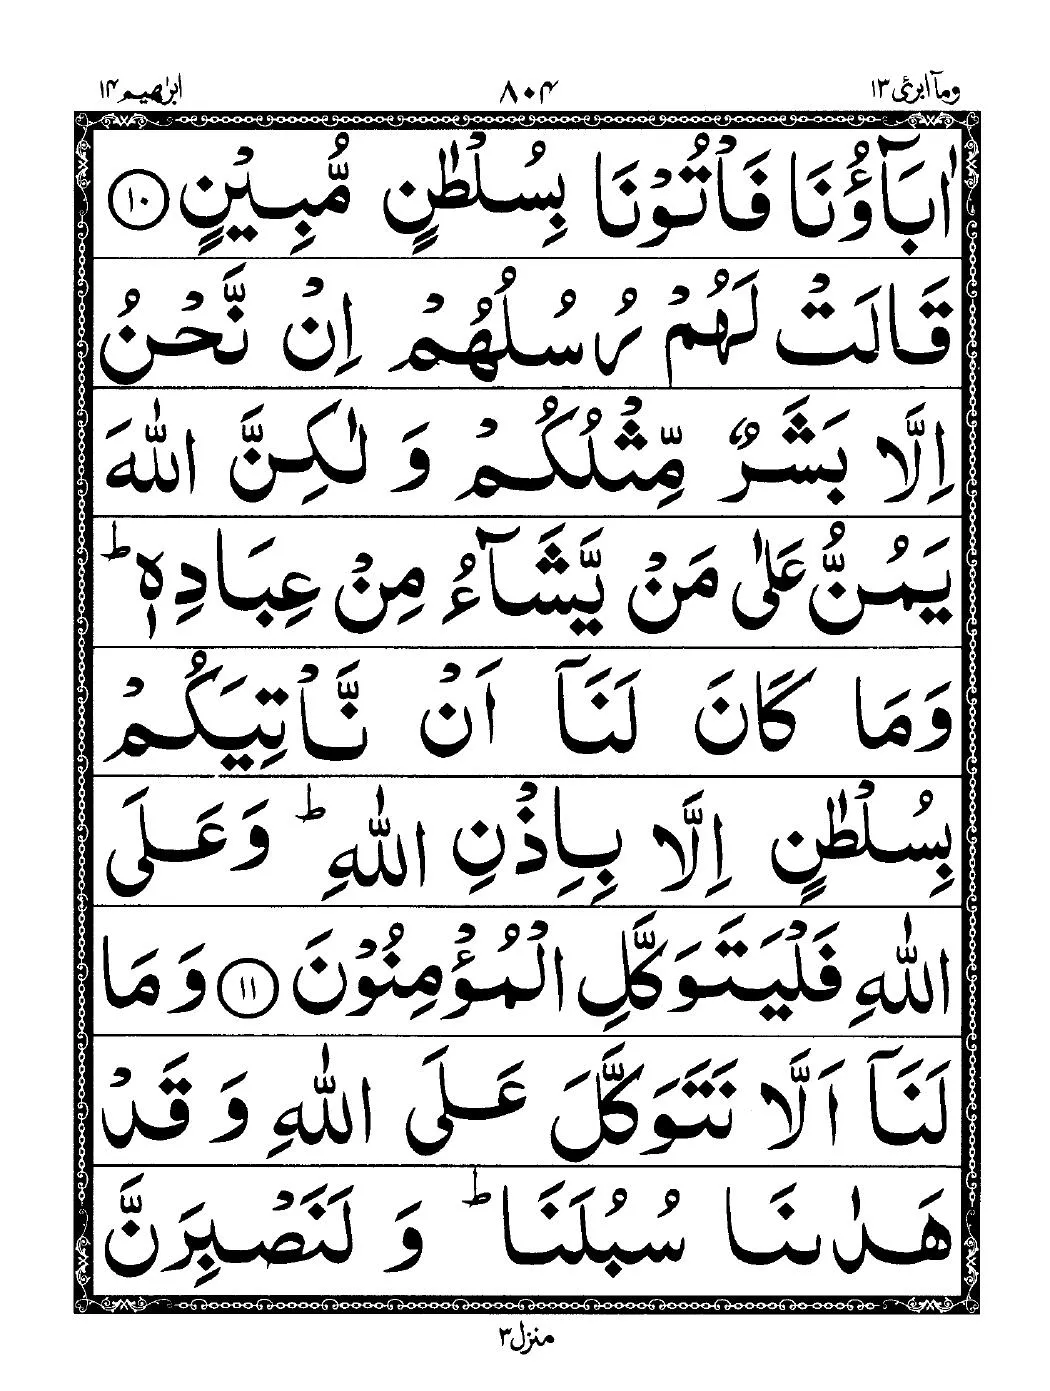 وماۤ ابرئ ۱۳
۸۰۴
ابرٰهيم ۱۴
اٰبَآؤُنَا فَاْتُوْنَا بِسُلْطٰنٍ مُّبِيْنٍ ۱۰
قَالَتْ لَهُمْ رُسُلُهُمْ اِنْ نَّحْنُ
اِلَّا بَشَرٌ مِّثْلُكُمْ وَ لٰكِنَّ اللّٰهَ
يَمُنُّ عَلٰى مَنْ يَّشَآءُ مِنْ عِبَادِهٖ ؕ
وَمَا كَانَ لَنَاۤ اَنْ نَّاْتِيَكُمْ
بِسُلْطٰنٍ اِلَّا بِاِذْنِ اللّٰهِ ؕ وَعَلَى
اللّٰهِ فَلْيَتَوَكَّلِ الْمُؤْمِنُوْنَ ۱۱ وَمَا
لَنَاۤ اَلَّا نَتَوَكَّلَ عَلَى اللّٰهِ وَ قَدْ
هَدٰىنَا سُبُلَنَا ؕ وَ لَنَصْبِرَنَّ
منزل ۳